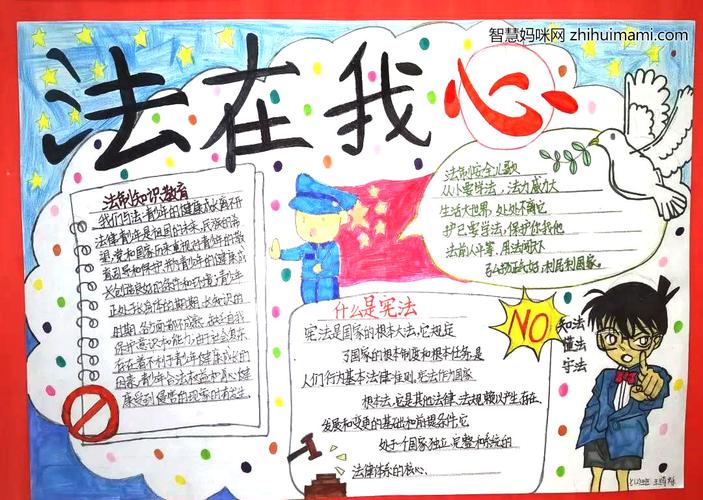 智慧妈咪网 zhihuimami.com
法在我心
法制知识教育
我们与法 青少年的健康成长离不开
法律 青少年是祖国的未来,民族的希
望,党和国家历来重视对青少年的教
育引导和保护,为青少年的健康成
长创造良好的条件和环境;青少年
正处于长身体的期期,长知识的
时期,各方面都不成熟,缺乏自我
保护意识和能力,由于社会上
存在着不利于青少年健康成长的
因素,青少年合法权益和身心健
康受到侵害的现象时有发生
法制安全儿歌
从小要学法,法力威力大
生活大世界,处处不离它
护己要学法,保护你我他
法前人平等,用法
弘扬正气好,利民利国家.
什么是宪法
宪法是国家的根本大法,它规定
了国家的根本制度和根本任务,是
人们行为基本法律准则,宪法作为国家
根本法,它是其他法律、法规赖以产生、存在、
发展和变更的基础和前提条件,它
处于一个国家独立、完整和系统的
法律体系的核心.
NO
知法
懂法
守法